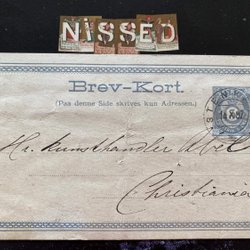 NISSED
Brev-Kort.
(Paa denne Side skrives kun Adressen.)
Hr. Kunsthandler Abel
Christiania